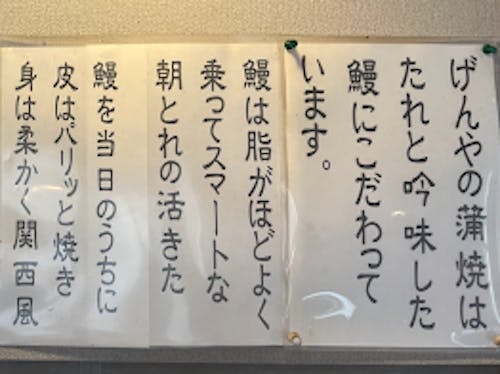 げんやの蒲焼は
たれと吟味した
鰻にこだわって
います。
鰻は脂がほどよく
乗ってスマートな
朝とれの活きた
鰻を当日のうちに
皮はパリッと焼き
身は柔かく関西風